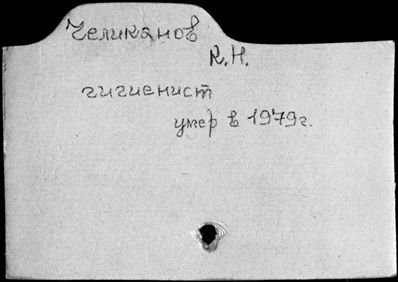 Челиканов
К.Н.
гигиенист
умер в 1979г.